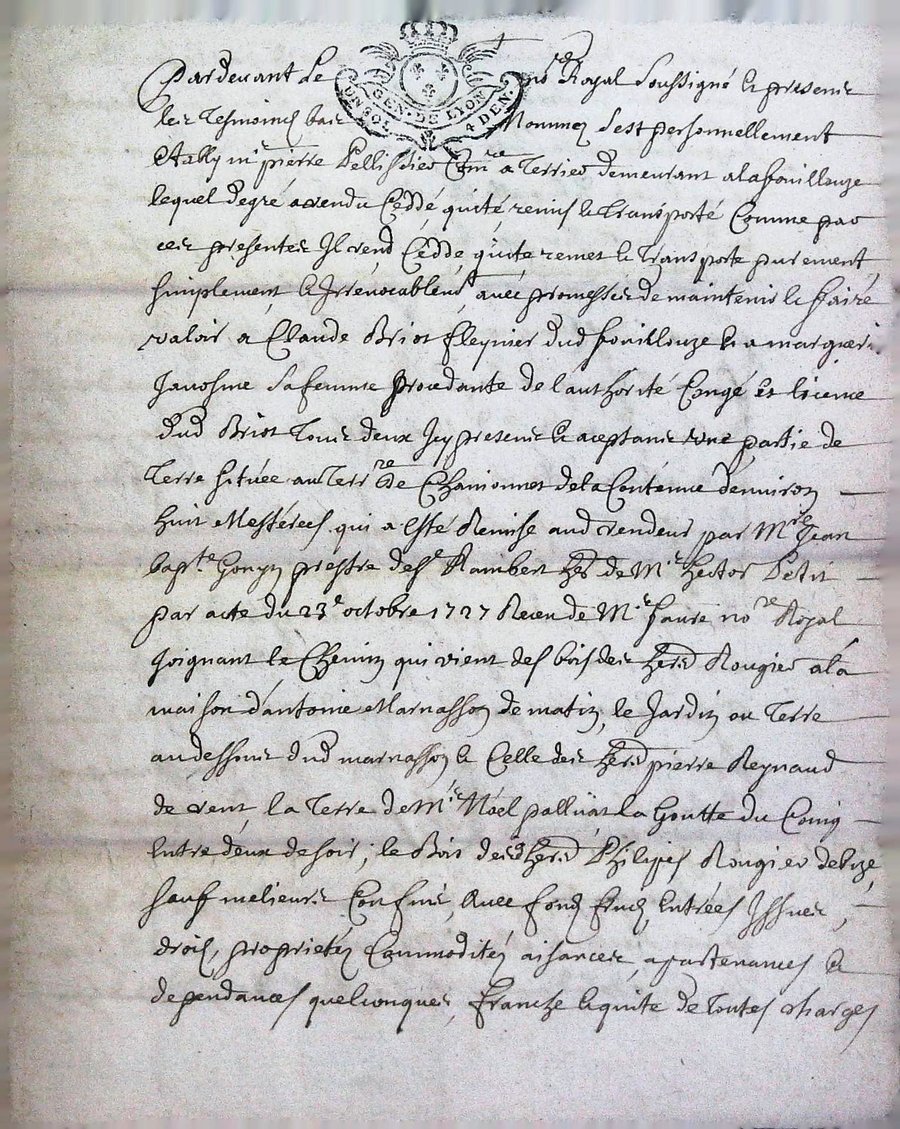 Pardevant Le no.re Royal Soussigné & presents
GEN. DE LION
UN SOL 4 DEN.
les Tesmoins bas Nommez S'est personnellement
Estably m.re pierre Pellissier Com.re a Terrier demeurant a lafouillouze
lequel degré a vendu Ceddé quité, remis & transporté Comme par
ces presentes Il vend Cedde quite remet & transporte purement
simplement & Irrévocablem.t avec promesses de maintenir & faire
valoir a Claude Briot dud fouillouze & a margueri
sa femme procedante de l'authorité Congé et licence
dud Briot Tous deux Icy presents & aceptants une partie de
Terre située au Terr.re de Chavonnet de la Contenue d'environ
huit Mestérées qui a Esté Remise aud vendeur par M.re Jean
bap.te prestre de S.t Rambert her de M.re hector Petit
par acte du 23.e octobre 1727 Receu de M.e faure no.re Royal
Joignant le Chemin qui vient des bois des herd Rougier a la
maison d'antoine Marnasson de matin, le Jardin ou Terre
au dessous dud marnasson & Celle des herd pierre Reynaud
de vent, la Terre de M.re Noel palluat la Goutte du Coing
Entre deux de soir, le Bois desd herd Philipes Rougier de bize,
sauf melieurs Confins, Avec fond fruits, Entrées Issues,
droits, proprietéz Commoditéz aisances, apartenances &
dependances quelconques, franche & quite de toutes charges